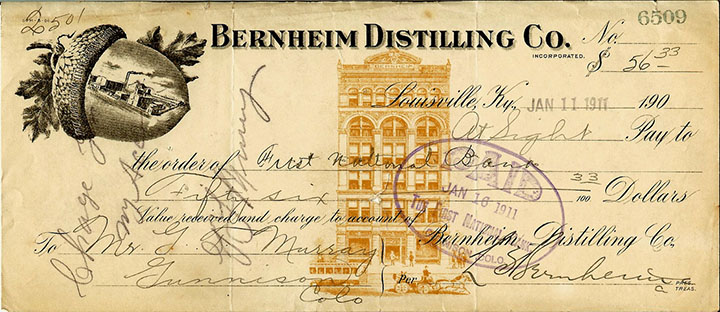 BERNHEIM DISTILLING CO.
INCORPORATED.
No. 6509
$ 56 33
Louisville, Ky., JAN 11 1911 190
At Sight Pay to
the order of First National Bank
Fifty six 33/100 Dollars
Value received and charge to account of
To Mr. G. Murray
Bernheim Distilling Co.
Gunnison
Colo
Per Bernheim
TREAS.
PAID
JAN 16 1911
THE FIRST NATIONAL BANK
COLO.
Charge
my